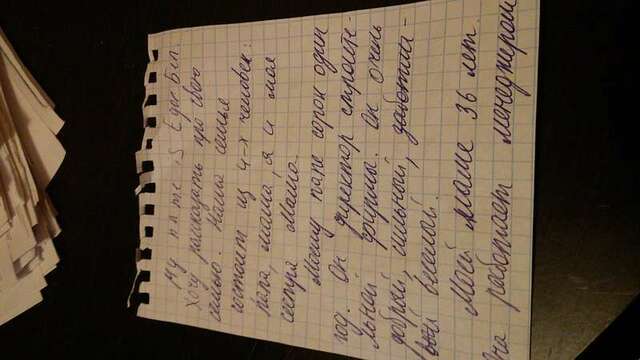 My name is Egor Бел.
Хочу рассказать про свою
семью. Наша семья
состоит из 4-х человек:
папа, мама, я и моя
сестра Маша.
Моему папе сорок один
год. Он директор строите-
льной фирмы. Он очень
добрый, сильный, заботли-
вый веселый.
Моей маме 36 лет.
Она работает менеджером